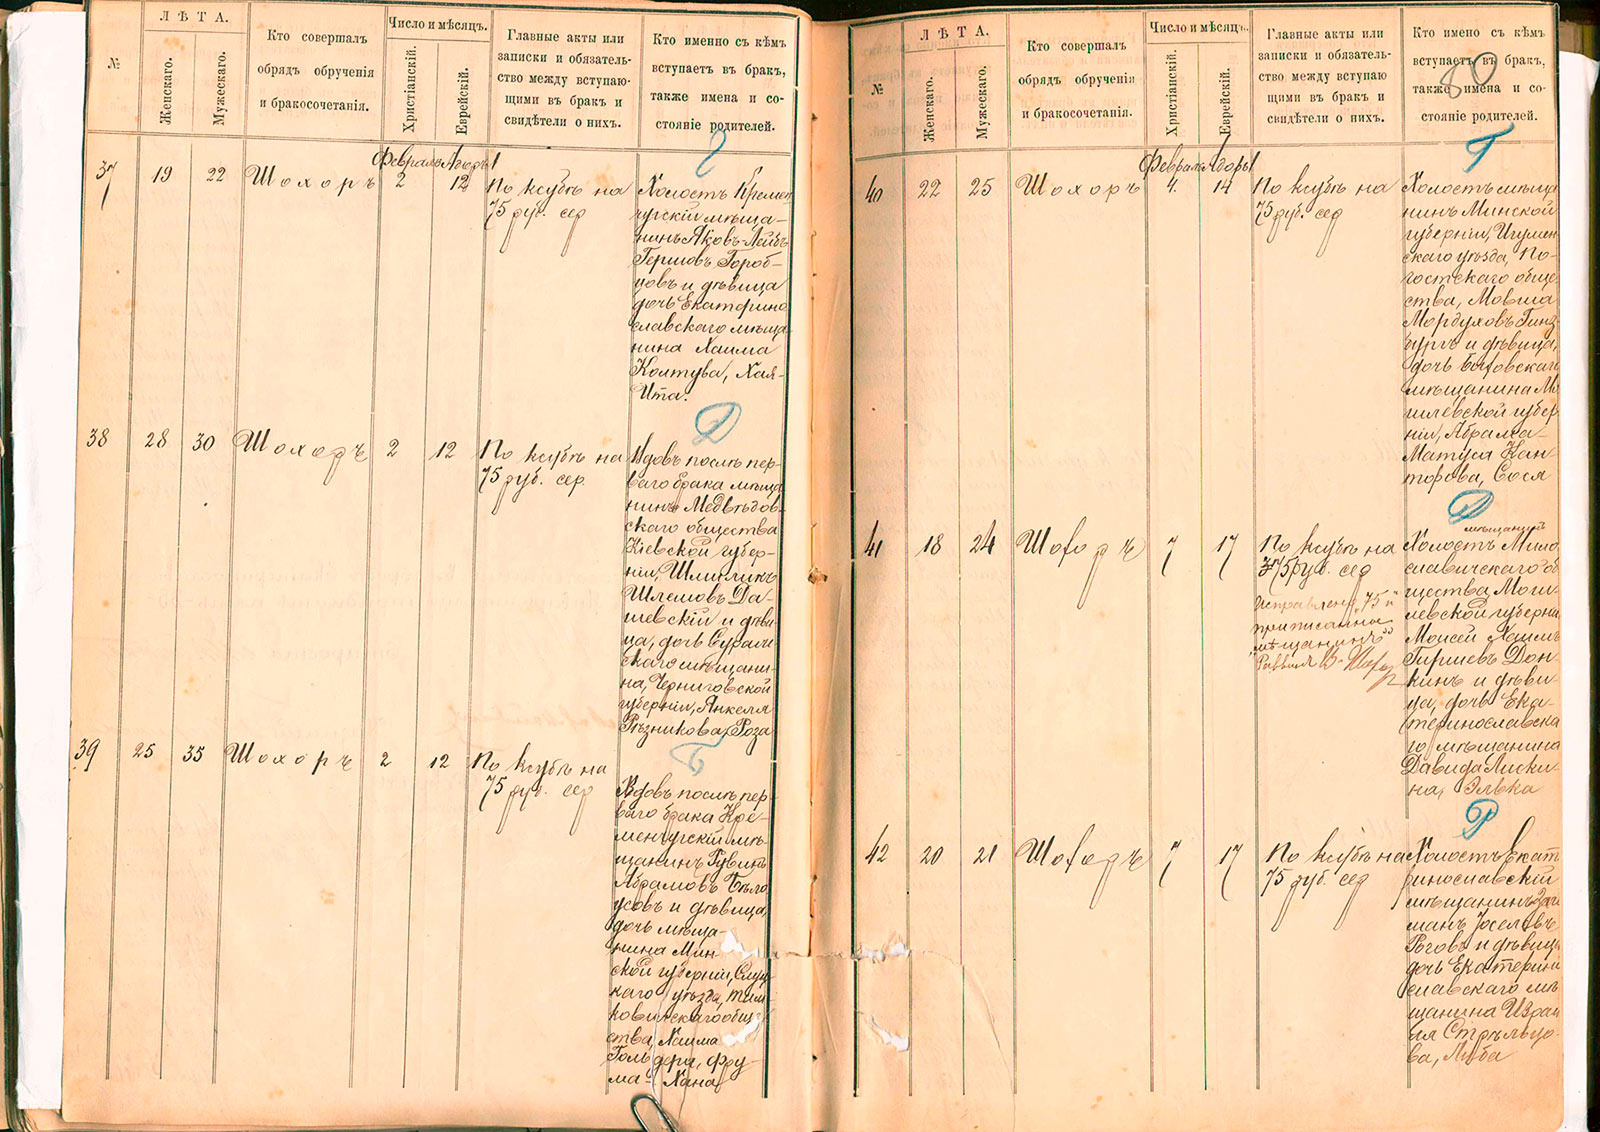 №
ЛѢТА.
Женскаго.
Мужескаго.
Кто совершалъ
обрядъ обрученія
и бракосочетанія.
Число и мѣсяцъ.
Христіанскій.
Еврейскій.
Главные акты или
записки и обязатель-
ство между вступаю-
щими въ бракъ и
свидѣтели о нихъ.
Кто именно съ кѣмъ
вступаетъ въ бракъ,
также имена и со-
стояніе родителей.
37
19
22
Шохоръ
Февраль
2
Адоръ 1
12
По ксубѣ на
75 руб. сер
Г
Холостъ Кремен
чугскій мѣща-
нинъ Яковъ-Лейбъ
Гершовъ Гороб-
цовъ и дѣвица
дочь Екатерино
славскаго мѣща
нина Хаима
Колтува, Хая-
Ита.
38
28
30
Шохоръ
2
12
По ксубѣ на
75 руб. сер.
Д
Вдовъ послѣ пер-
ваго брака мѣща
нинъ Медвѣдов-
скаго общества
Кіевской губер-
ніи, Шмиликъ
Шлемовъ Да-
шевскій и дѣви-
ца, дочь Суражи-
скаго мѣщани-
на, Черниговской
губерніи, Янкеля
Рѣзникова, Роза
39
25
35
Шохоръ
2
12
По ксубѣ на
75 руб. сер
Б
Вдовъ послѣ пер-
ваго брака Кре-
менчугскій мѣ-
щанинъ Рувинъ
Абрамовъ Бѣло
усовъ и дѣвица,
дочь мѣща-
нина Мин
ской губерніи, Слуц
каго уѣзда, Тим-
ковическаго общ
ства, Хаима
Гольдера, Фру-
ма-Хана
80
№
ЛѢТА.
Женскаго.
Мужескаго.
Кто совершалъ
обрядъ обрученія
и бракосочетанія.
Число и мѣсяцъ.
Христіанскій.
Еврейскій.
Главные акты или
записки и обязатель-
ство между вступаю
щими въ бракъ и
свидѣтели о нихъ.
Кто имено съ кѣмъ
вступаетъ въ бракъ,
также имена и со-
стояніе родителей.
40
22
25
Шохоръ
Февраль
4.
Адоръ 1
14
По ксубѣ на
75 руб. сер
Г
Холостъ мѣща
нинъ Минской
губерніи, Игумен
скаго уѣзда, По-
гостскаго обще
ства, Мовша
Мордуховъ Гинз
бургъ и дѣвица,
дочь Быховскаго
мѣщанина Мо
гилевской губер
ніи, Абрама-
Матуса Кан-
торова, Сося
41
18
24
Шохоръ
7
17
По ксубѣ на
75 руб. сер
Исправлено „75 и
приписанна
„мѣщанинъ“
Раввин В. Шохор
Д
мѣщанинъ
Холостъ Мило
славичскаго об
щества, Моги-
левской губерніи
Моисей Хаимъ
Гиршевъ Дон-
кинъ и дѣви-
ца, дочь Ека-
теринославска
го мѣщанина
Давида Лиски-
на, Элька
42
20
21
Шохоръ
7
17
По ксубѣ на
75 руб. сер
Р
Холостъ Екат
ринославскій
мѣщанинъ Зал
манъ Іоселевъ
Роговъ и дѣвица
дочь Екатерини
славскаго мѣ
щанина Израи
ля Стрѣльцо-
ва, Люба